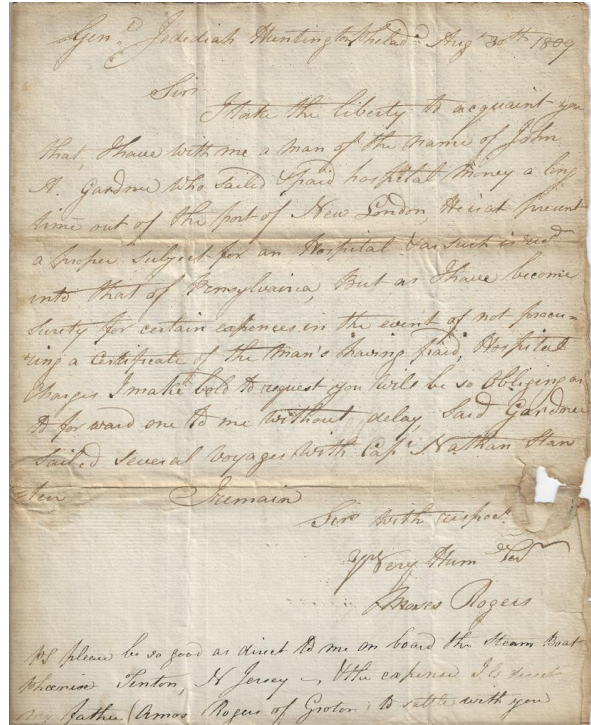 Genl Jedediah Huntington Philada Augt 30th 1809
Sir
I take the liberty to acquaint you
that, I have with me a man of the name of John
A. Gardner who sailed & paid hospital money a long
time out of the port of New London, He is at present
a proper subject for an Hospital & as such is recd
into that of Pennsylvainia, But as I have become
surety for certain expences in the event of not procu=
=ring a certificate of the man's having paid, Hospital
Charges I make bold to request you will be so Obliging as
to forward one to me without delay, Said Gardner
sailed several voyages with Capt Nathan
I remain
Sir with respect
Yr Very Hum Ser
Moses Rogers
PS please be so good as direct to me on board the Steam Boat
Phoenix Trenton, N Jersey — & the expence I
my father (Amos Rogers of Groton) to settle with you